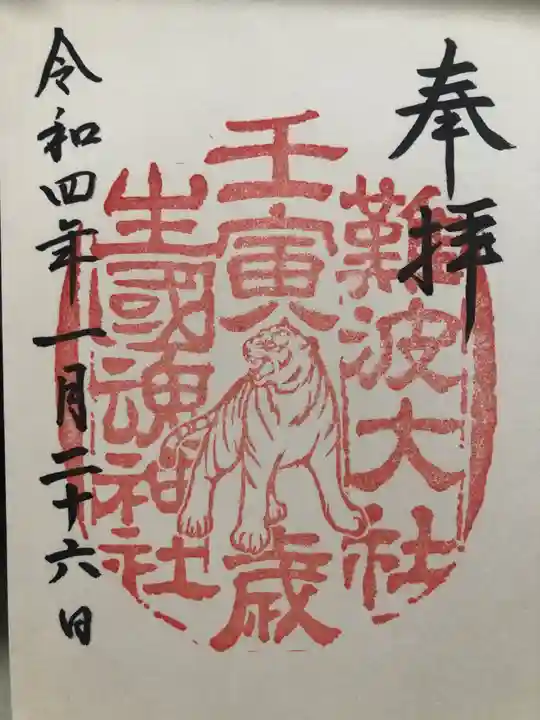 奉拝
難波大社
壬寅歳
生國魂神社
令和四年一月二十六日